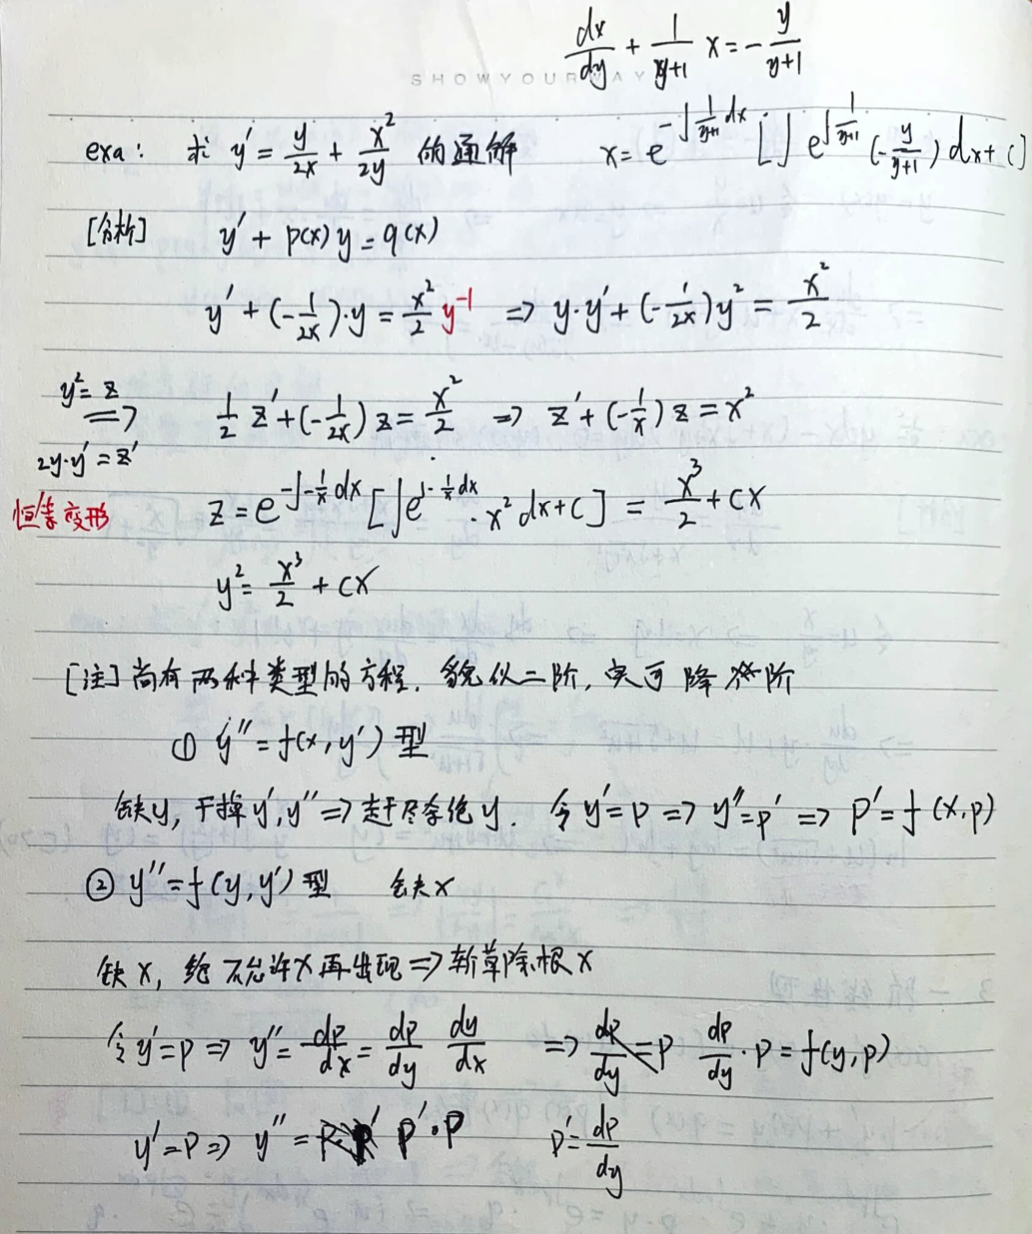 dx/dy + 1/(y+1) x = - y/(y+1)
SHOWYOURWAY
exa: 求 y' = y/2x + x²/2y 的通解
x = e^{-∫ 1/(y+1) dx} [∫ e^{∫ 1/(y+1)} (- y/(y+1)) dx + C]
[分析] y' + p(x) y = q(x)
y' + (-1/2x)·y = x²/2 y⁻¹ => y·y' + (-1/2x) y² = x²/2
y² = z => 1/2 z' + (-1/2x) z = x²/2 => z' + (-1/x) z = x²
2y·y' = z'
恒等变形
z = e^{-∫ -1/x dx} [∫ e^{∫ -1/x dx} · x² dx + C] = x³/2 + Cx
y² = x³/2 + Cx
[注] 尚有两种类型的方程, 貌似二阶, 实可降阶
① y'' = f(x, y') 型
缺y, 干掉y', y'' => 赶尽杀绝y. 令 y' = p => y'' = p' => p' = f(x, p)
② y'' = f(y, y') 型 缺x
缺x, 绝不允许x再出现 => 斩草除根x
令 y' = p => y'' = dp/dx = dp/dy dy/dx => dp/dy = p dp/dy · p = f(y, p)
y' = p => y'' = p'·p p' = dp/dy